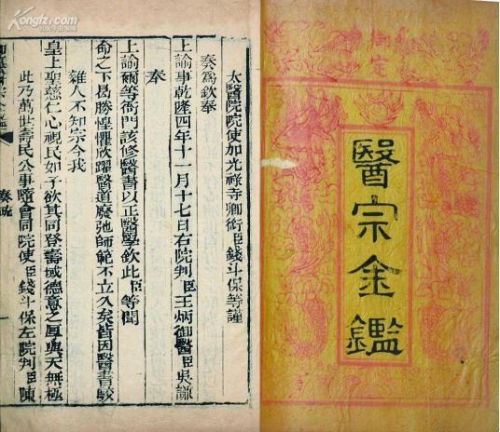 醫宗金鑑
太醫院院使加光祿寺卿銜臣錢斗保等謹
奏為欽奉
上諭事乾隆四年十一月十七日右院判臣王炳御醫臣吳謙
奉
上諭爾等衙門該修醫書以正醫學欽此臣等聞
命之下曷勝惶懼欣躍醫道廢弛師範不立久矣皆因醫書駁
雜人不知宗今我
皇上聖慈仁心視民如子欲其同登壽域德意之厚與天無極
此乃萬世壽民公事隨會同院使臣錢斗保左院判臣陳
奏疏
Kongfz.com